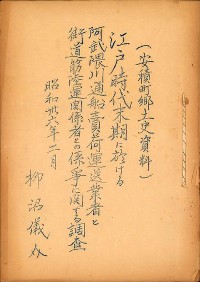 (安積町郷土史資料)
江戸時代末期に於ける
阿武隈川通船賣荷運送業者と
街道筋陸運関係者との係争に関する調査
昭和卅六年二月
柳沼儀